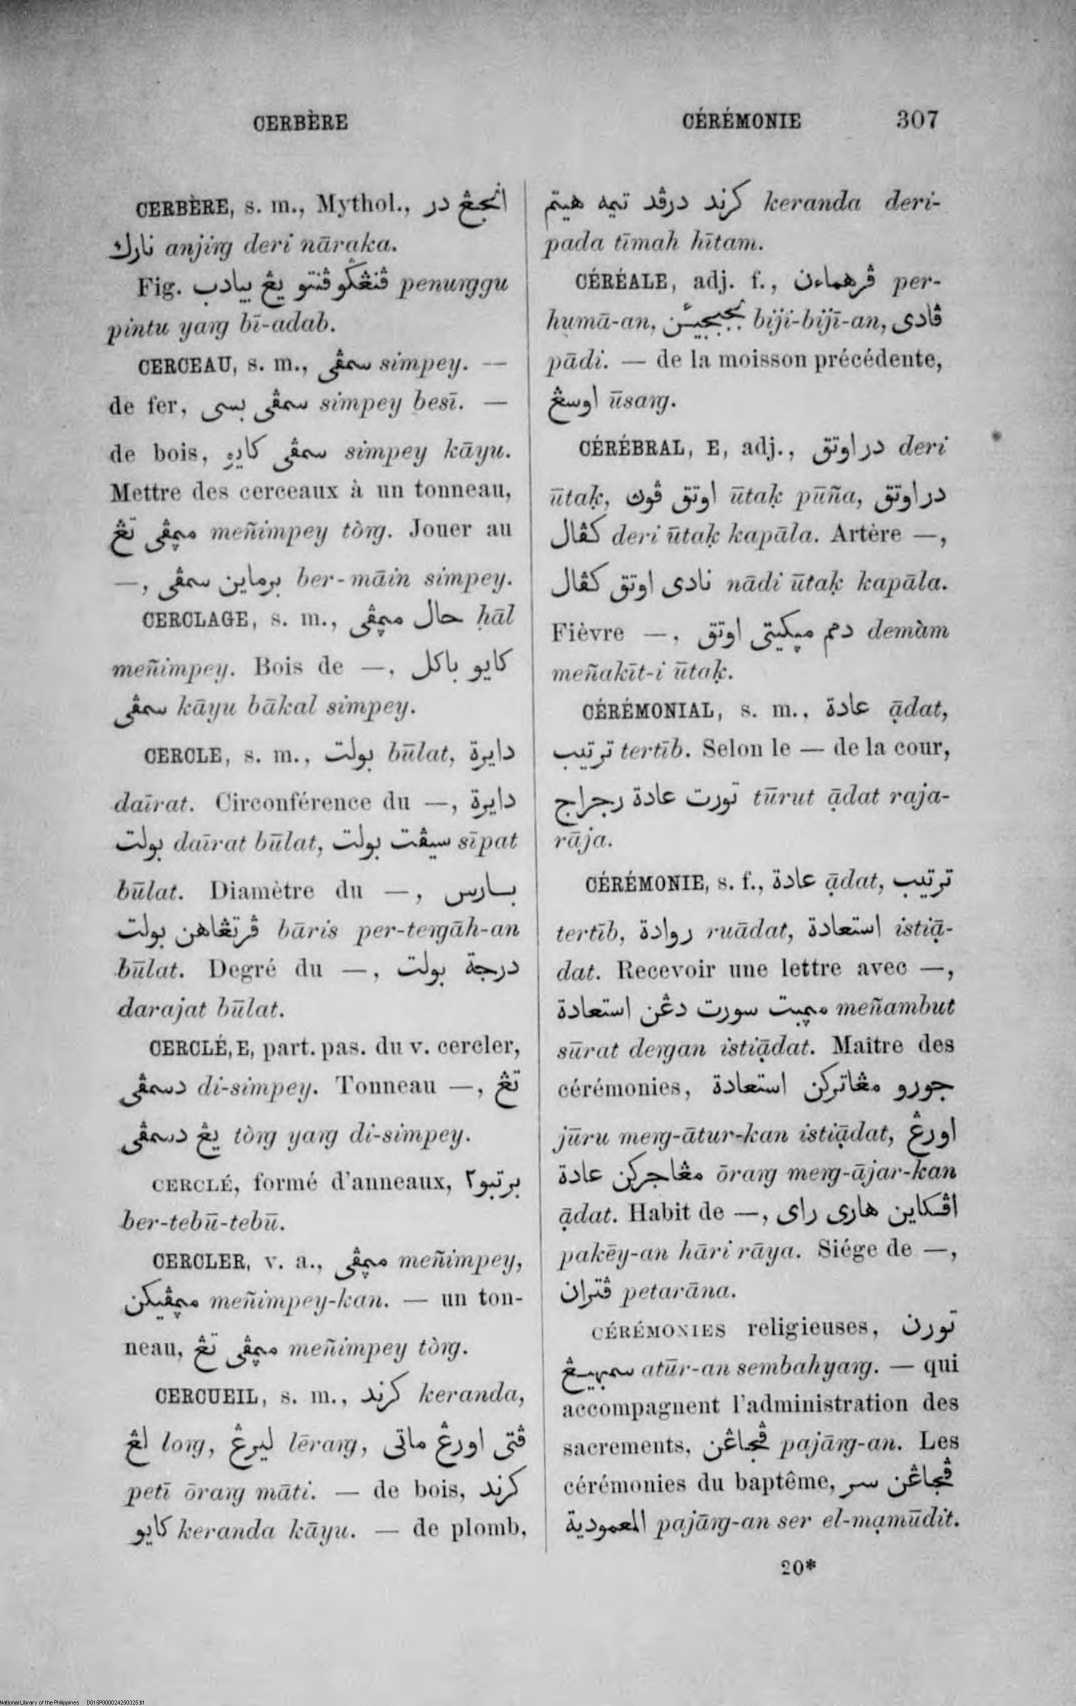 CERBÈRE
CÉRÉMONIE 307
CERBÈRE, s. m., Mythol., انجڠ در
نارك anjiŋ deri nāraḳa.
Fig. ڤنڠكو ڤنتو يڠ بيادب penuŋgu
pintu yaŋ bī-adab.
CERCEAU, s. m., سمڤى simpey. —
de fer, سمڤى بسى simpey besī. —
de bois, سمڤى كايو simpey kāyu.
Mettre des cerceaux à un tonneau,
مڽمڤى تڠ meñimpey tòŋ. Jouer au
—, برماين سمڤى ber-māin simpey.
CERCLAGE, s. m., حال مڽمڤى ḥāl
meñimpey. Bois de —, كايو باكل
سمڤى kāyu bākal simpey.
CERCLE, s. m., بولت būlat, دايرة
daīrat. Circonférence du —, دايرة
بولت daīrat būlat, سيڤت بولت sīpat
būlat. Diamètre du —, بارس
ڤرتڠاهن بولت bāris per-teŋāh-an
būlat. Degré du —, درجة بولت
darajat būlat.
CERCLÉ, E, part. pas. du v. cercler,
دسمڤى di-simpey. Tonneau —, تڠ
يڠ دسمڤى tòŋ yaŋ di-simpey.
CERCLÉ, formé d'anneaux, برتبو٢
ber-tebū-tebū.
CERCLER, v. a., مڽمڤى meñimpey,
مڽمڤيكن meñimpey-kan. — un ton-
neau, مڽمڤى تڠ meñimpey tòŋ.
CERCUEIL, s. m., كرند keranda,
لڠ loŋ, ليرڠ lēraŋ, ڤتى اورڠ ماتى
petī ōraŋ māti. — de bois, كرند
كايو keranda kāyu. — de plomb,
كرند درڤد تيمه هيتم keranda deri-
pada tīmah hītam.
CÉRÉALE, adj. f., ڤرهماءن per-
humā-an, بجبجيئن biji-bijī-an, ڤادى
pādi. — de la moisson précédente,
اوسڠ ūsaŋ.
CÉRÉBRAL, E, adj., در اوتق deri
ūtaḳ, اوتق ڤوڽ ūtaḳ pūña, در اوتق
كڤال deri ūtaḳ kapāla. Artère —,
نادى اوتق كڤال nādi ūtaḳ kapāla.
Fièvre —, دمم مڽكيتى اوتق demàm
meñakīt-i ūtaḳ.
CÉRÉMONIAL, s. m., عادة ạ̄dat,
ترتيب tertīb. Selon le — de la cour,
تورت عادة رجراج tūrut ạ̄dat raja-
rāja.
CÉRÉMONIE, s. f., عادة ạ̄dat, ترتيب
tertīb, روادة ruādat, استعادة istiạ̄-
dat. Recevoir une lettre avec —,
مڽمبت سورت دڠن استعادة meñambut
sūrat deŋan istiạ̄dat. Maître des
cérémonies, جورو مڠاتركن استعادة
jūru meŋ-ātur-kan istiạ̄dat, اورڠ
مڠاجركن عادة ōraŋ meŋ-ājar-kan
ạ̄dat. Habit de —, اڤكاين هارى راى
pakēy-an hāri rāya. Siége de —,
ڤتران petarāna.
CÉRÉMONIES religieuses, تورن
سمبهيڠ atūr-an sembahyaŋ. — qui
accompagnent l'administration des
sacrements, ڤجاڠن pajāŋ-an. Les
cérémonies du baptême, ڤجاڠن سر
المعمودية pajāŋ-an ser el-mạmūdit.
20*
National Library of the Philippines